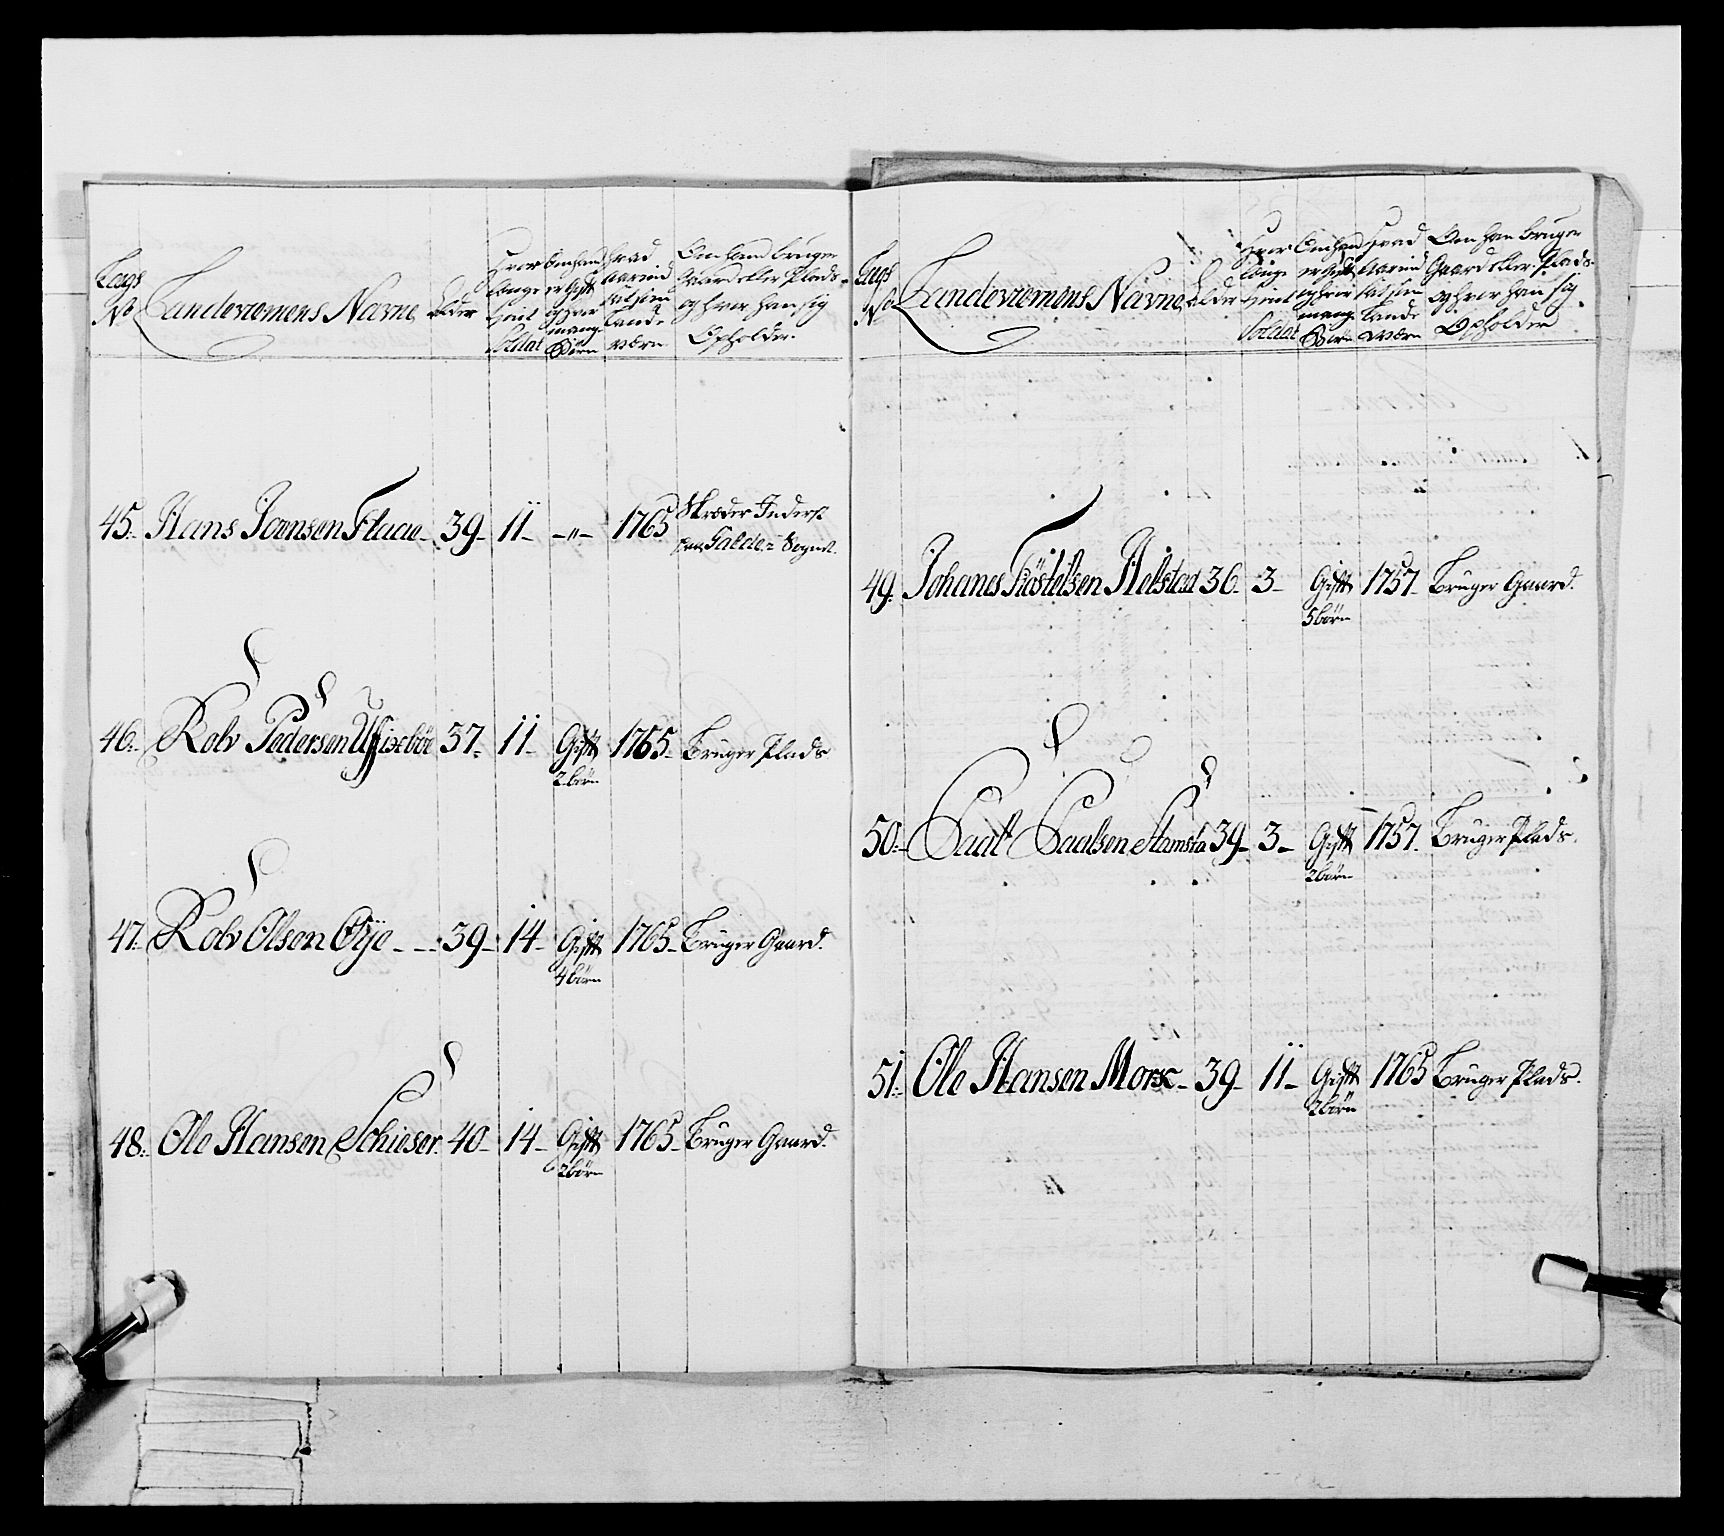 Laugs No
Landeværnens Navne
Alder
Hvor længe tient Soldat
Om hand er Gift og hvor mange Børn
Hvad Aar ind sat i sin Lande værn
Om hand bruger Gaard eller Plads og hvor han sig Opholder.
45. Hans Joensen Flaae 39 11 -"- 1765 Skræder Inderst paa Galde: Sogn
46. Rolv Pedersen Ufisebøe 37 11 Gift 2 børn 1765 Bruger Plads
47. Rolv Olsen Øÿe 39 14 Gift 4 børn 1765 Bruger Gaard.
48. Ole Hansen Schieser 40 14 Gift 2 børn 1765 Bruger Gaard.
Laugs No
Landeværnens Navne
Alder
Hvor længe tient Soldat
Om hand er Gift og hvor mange Børn
Hvad Aar ind sat i sin Lande Værn
Om han bruger Gaard eller Plads og hvor han sig Opholder
49. Johanes Kiöstelsen Helstad 36 3 Gift 5 børn 1757 Bruger Gaard.
50. Paal Paalsen Hamsta 39 3 Gift 2 børn 1757 Bruger Plads.
51. Ole Hansen Morx 39 11 Gift 2 børn 1765 Bruger Plads.